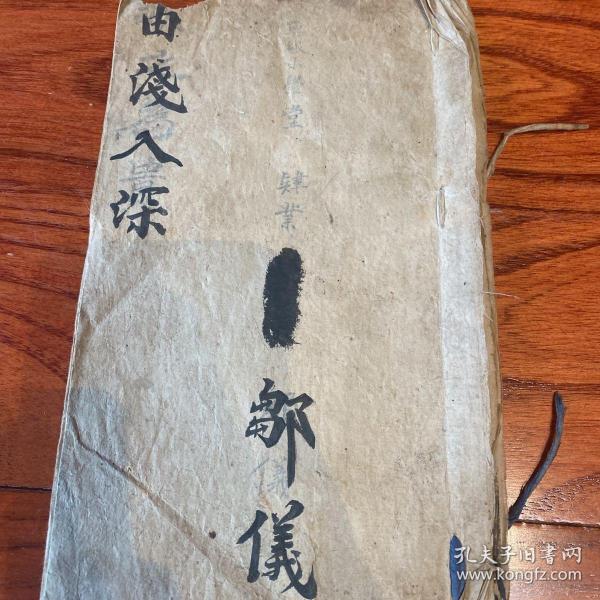 堂 肄業
鄒儀
由淺入深
孔夫子旧書网
www.kongfz.com